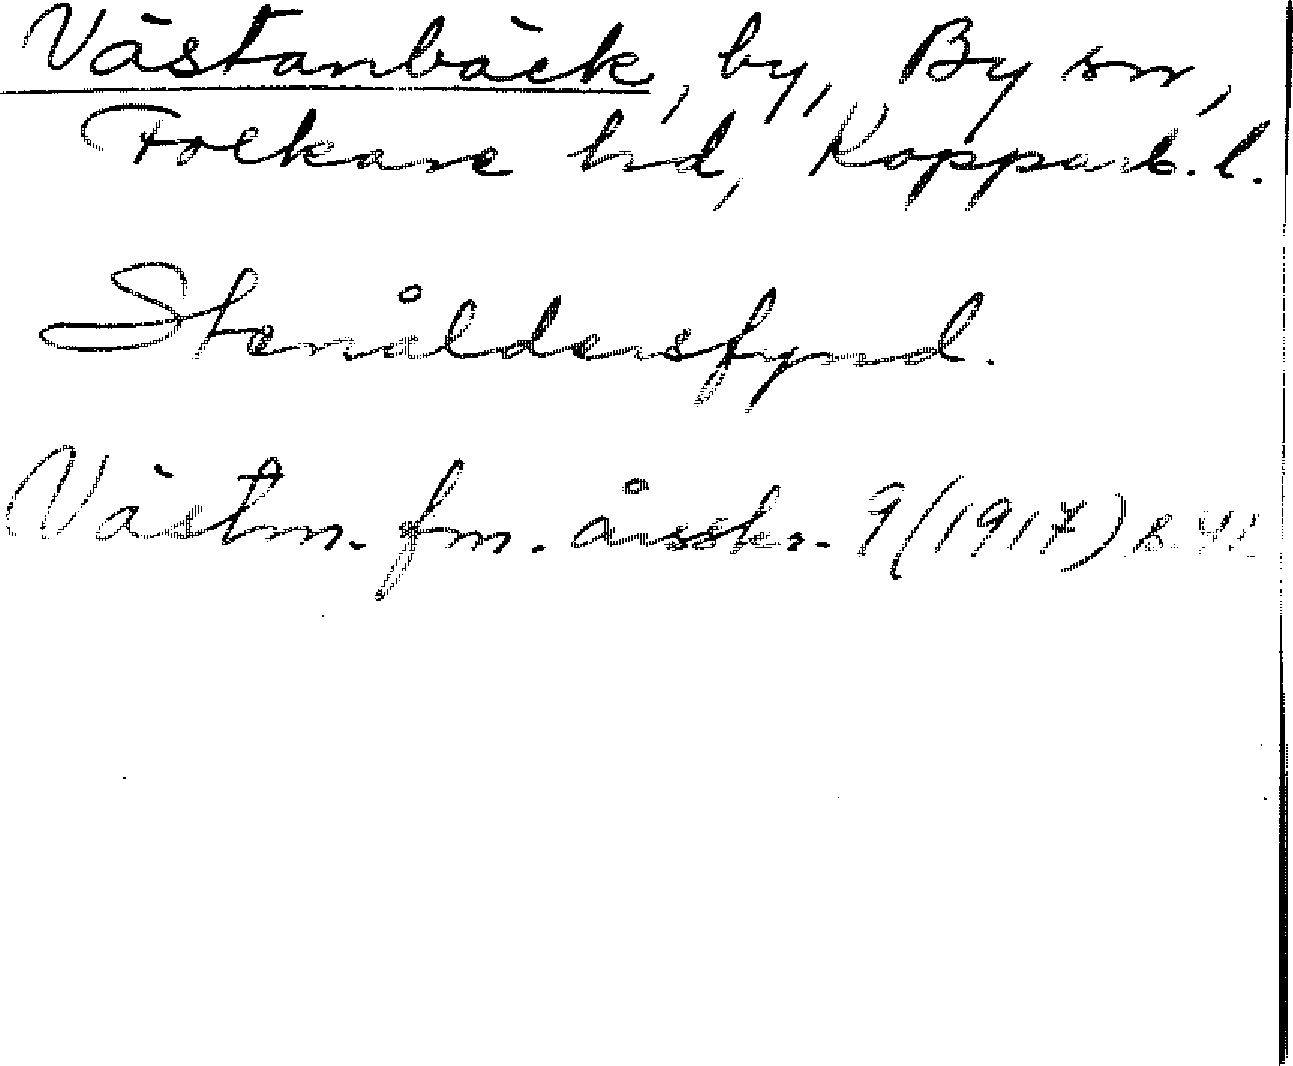 Västanbäck, by, By sn,
Folkare hd, Kopparb. l.
Stenåldersfynd.
Västm. fm. årsskr. 9 (1917) s.